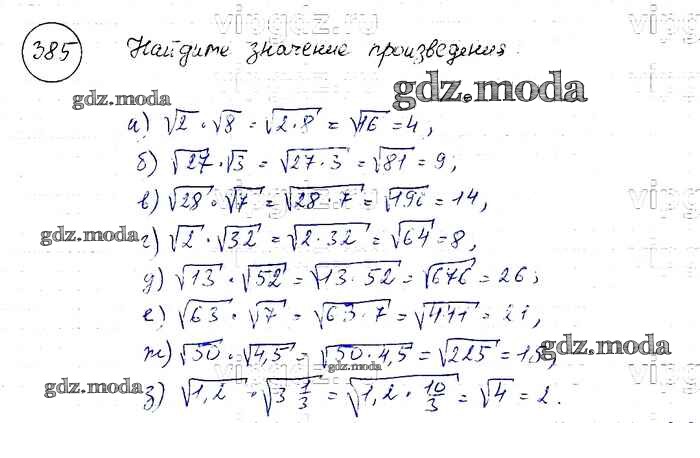 385 Найдите значение произведения.
а) √2 · √8 = √2·8 = √16 = 4,
б) √27 · √3 = √27·3 = √81 = 9;
в) √28 · √7 = √28·7 = √196 = 14,
г) √2 · √32 = √2·32 = √64 = 8,
д) √13 · √52 = √13·52 = √676 = 26;
е) √63 · √7 = √63·7 = √441 = 21,
ж) √50 · √4,5 = √50·4,5 = √225 = 15,
з) √1,2 · √3 1/3 = √1,2 · 10/3 = √4 = 2.
gdz.moda
gdz.moda
gdz.moda
gdz.moda
gdz.moda
vipgdz.ru